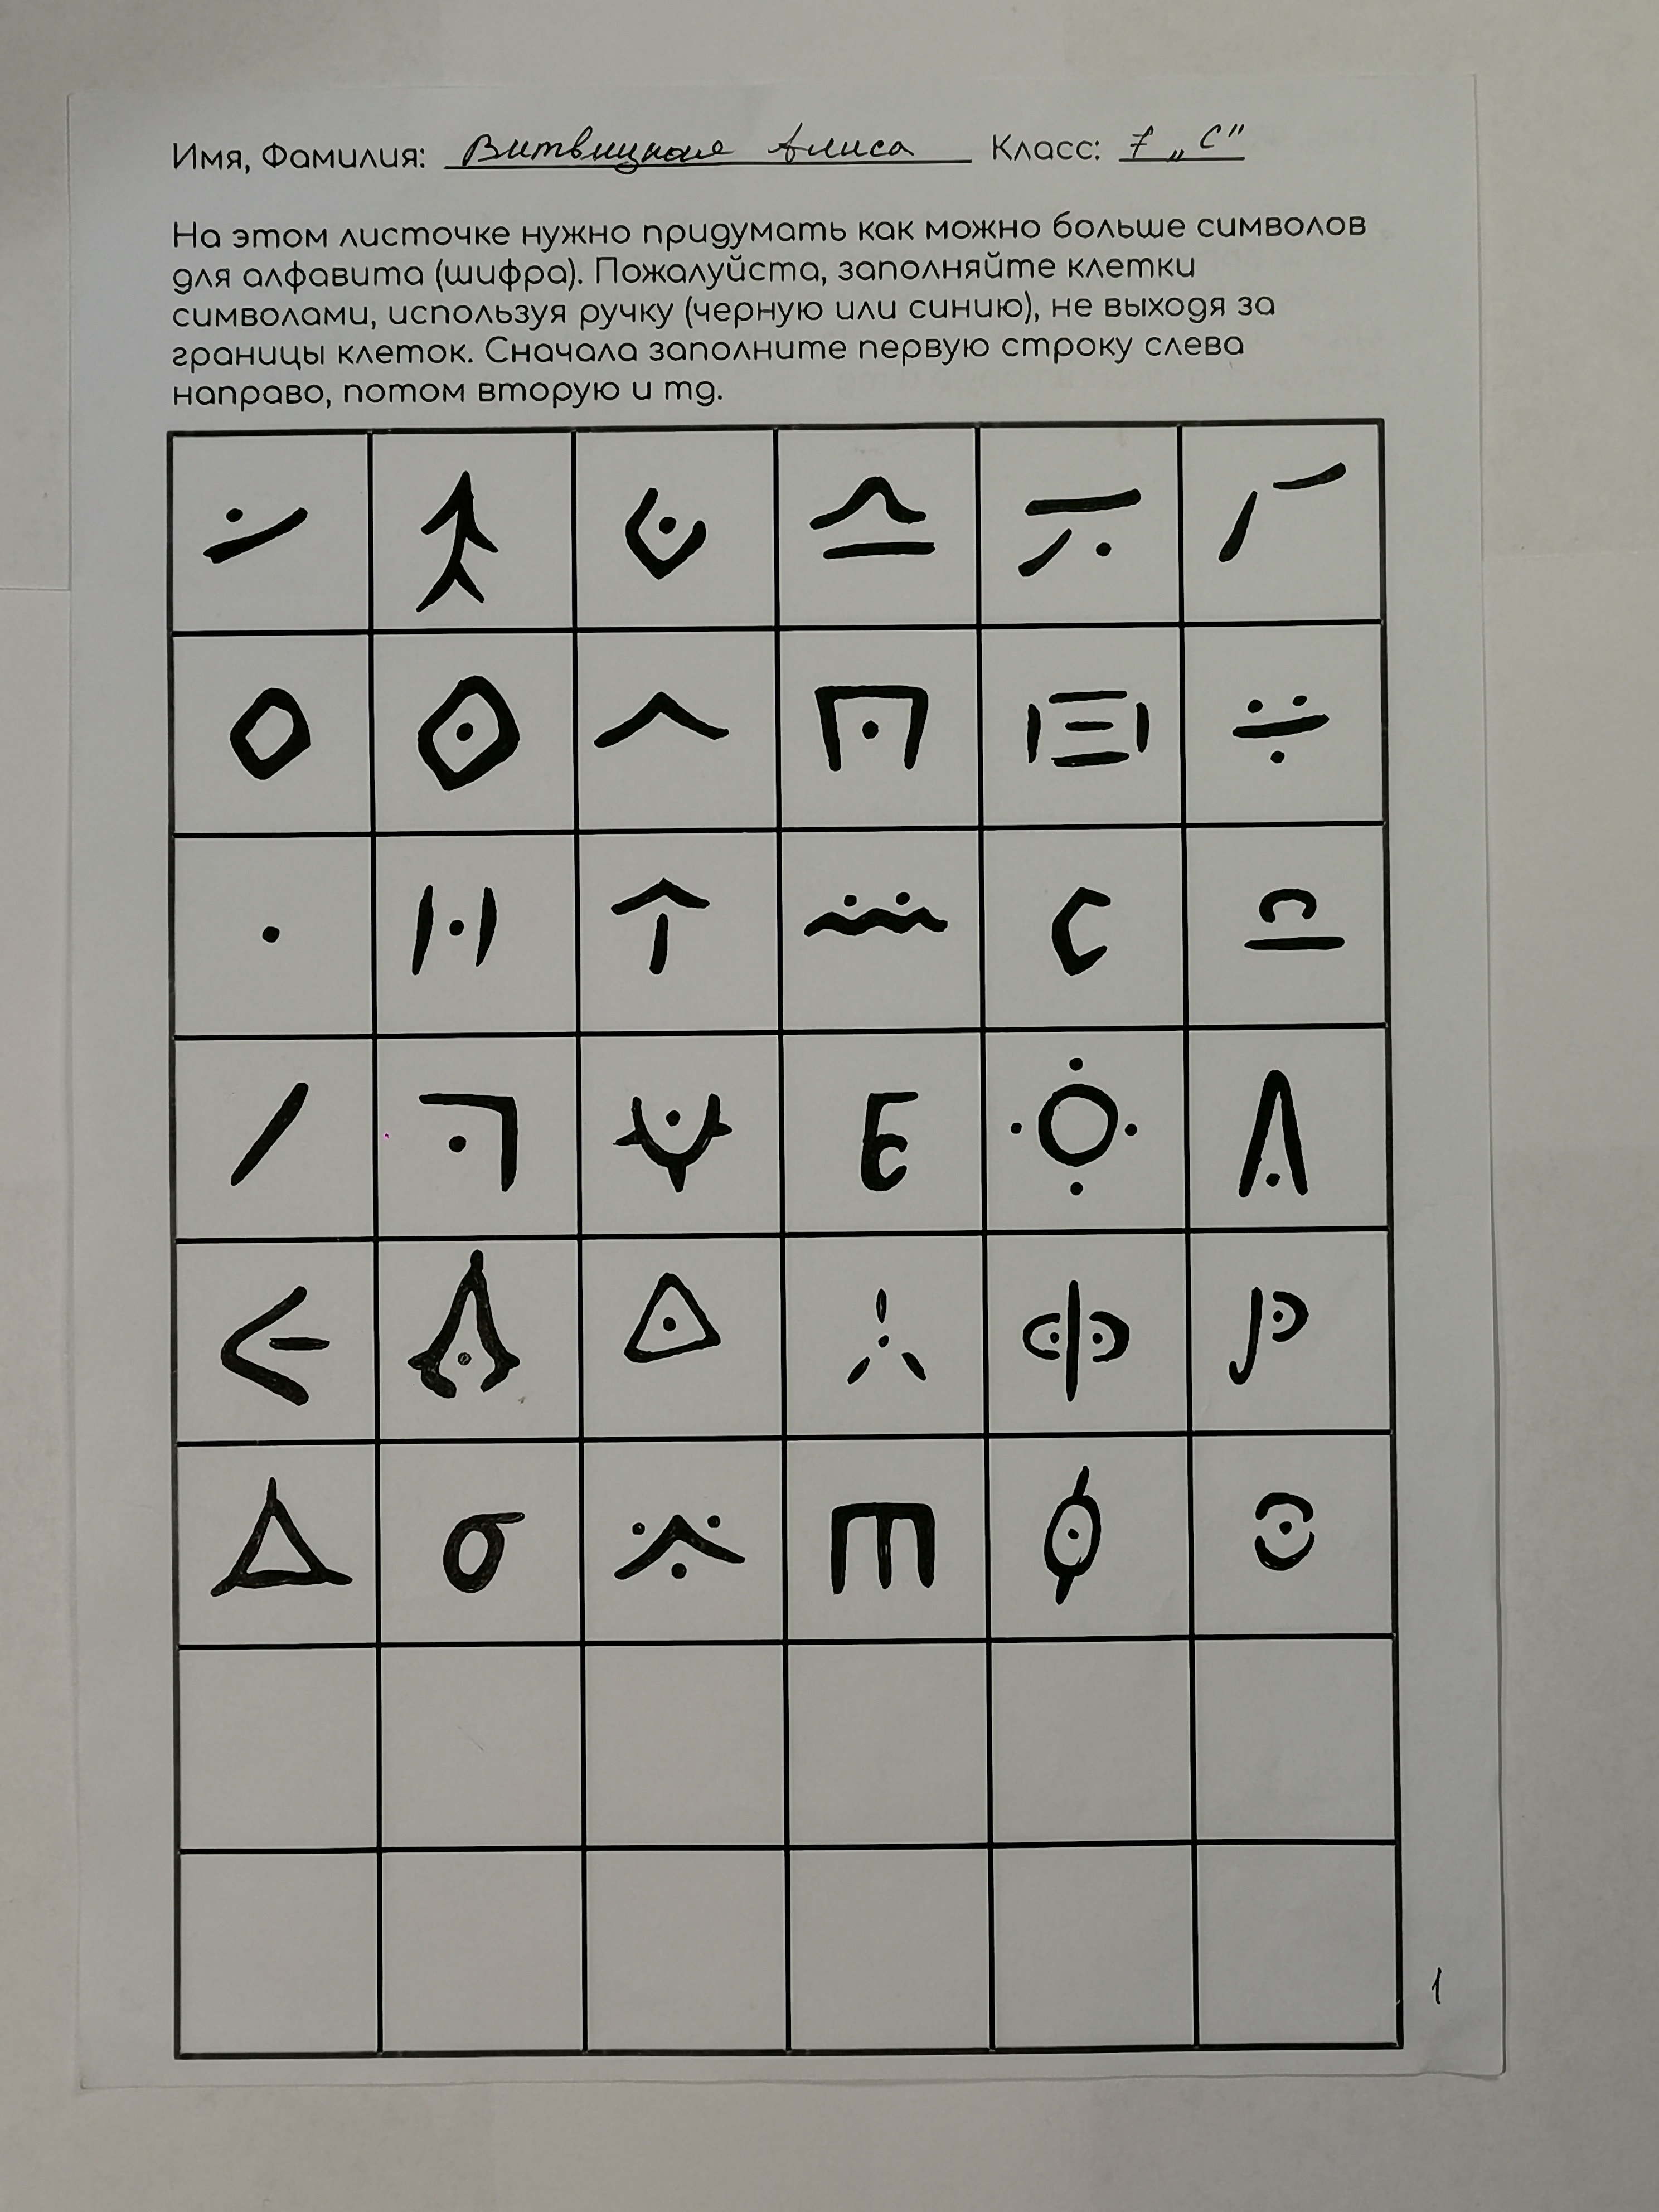 Имя, Фамилия: Витвицкая Алиса Класс: 7 „С"
На этом листочке нужно придумать как можно больше символов
для алфавита (шифра). Пожалуйста, заполняйте клетки
символами, используя ручку (черную или синию), не выходя за
границы клеток. Сначала заполните первую строку слева
направо, потом вторую и тд.
1